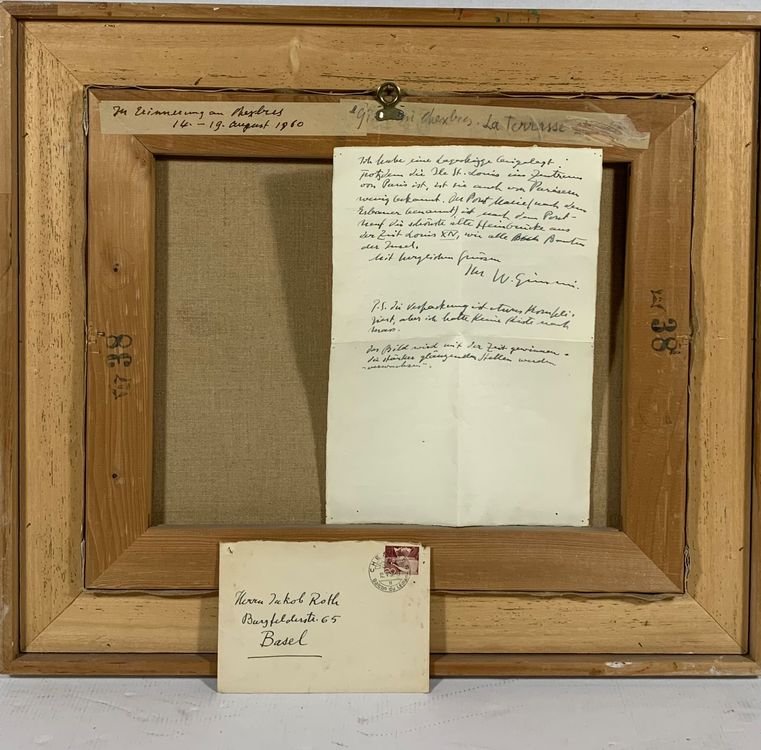 Zur Erinnerung an Chexbres
14. – 19. August 1960
Gimmi Chexbres. La Terrasse
Ich habe eine Lageskizze beigelegt.
Trotzdem die Ile St. Louis im Zentrum
von Paris ist, ist sie auch von Parisern
wenig bekannt. Der Pont Marie (nach dem
Erbauer benannt) ist nach dem Pont-
neuf die schönste alte Steinbrücke aus
der Zeit Louis XIV, wie alle Bauten
der Insel.
Mit herzlichen Grüssen
Ihr W. Gimmi.
P.S. die Verpackung ist etwas kompli-
ziert, aber ich hatte keine Kiste nach
mass.
das Bild wird mit der Zeit gewinnen -
die stärker glänzenden Stellen werden
38
38
Herrn Jakob Roth
Burgfelderstr. 65
Basel